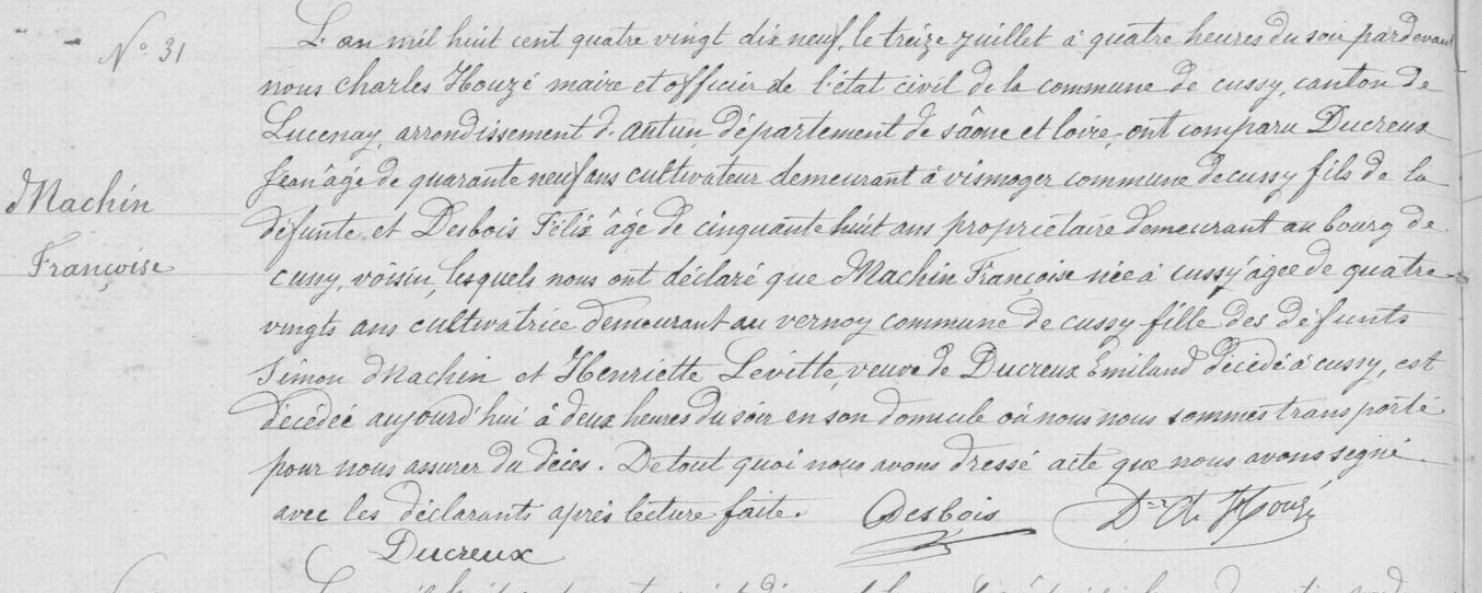 N° 31
Machin
Françoise
L'an mil huit cent quatre vingt dix neuf, le treize juillet à quatre heures du soir pardevant
nous Charles Houzé maire et officier de l'état civil de la commune de cussy, canton de
Lucenay, arrondissement d'autun, département de sâone et loire, ont comparu Ducreux
Jean âgé de quarante neuf ans cultivateur demeurant à vismoger commune de cussy fils de la
défunte, et Desbois Félix âgé de cinquante huit ans propriétaire demeurant au bourg de
cussy, voisin, lesquels nous ont déclaré que Machin Françoise née à cussy âgée de quatre
vingts ans cultivatrice demeurant au vernoy commune de cussy fille des défunts
Simon Machin et Henriette Levitte, veuve de Ducreux Emiland décédé à cussy, est
décédée aujourd'hui à deux heures du soir en son domicile où nous nous sommes transporté
pour nous assurer du décès. De tout quoi nous avons dressé acte que nous avons signé
avec les déclarants après lecture faite. Desbois Dr Ch. Houzé
Ducreux